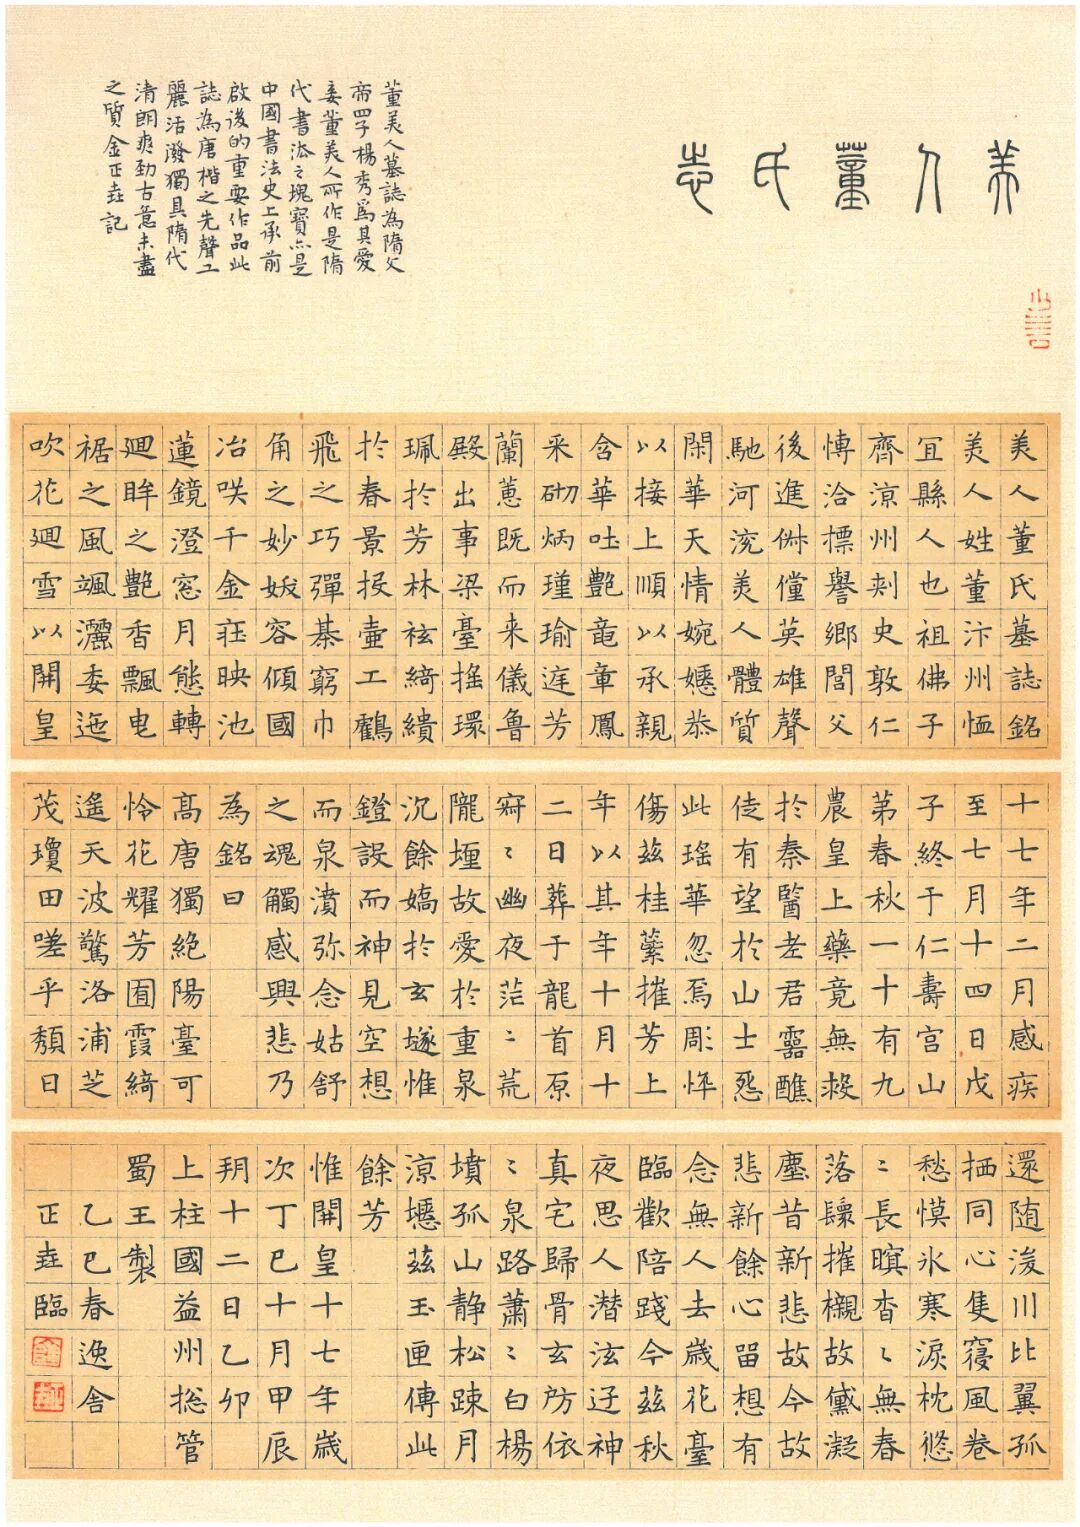 美人董氏志
董美人墓誌為隋文
帝四子楊秀爲其愛
妾董美人所作是隋
代書法之瑰寶亦是
中國書法史上承前
啟後的重要作品此
誌為唐楷之先聲工
麗活潑獨具隋代
清朗爽勁古意未盡
之質金正垚記
美人董氏墓誌銘
美人姓董汴州恤
宜縣人也祖佛子
齊涼州刺史敦仁
博洽標譽鄉閭父
後進俶儻英雄聲
馳河浣美人體質
閑華天情婉嫕恭
以接上順以承親
含華吐艷竜章鳳
采砌炳瑾瑜庭芳
蘭蕙既而来儀魯
殿出事梁臺搖環
珮於芳林袨綺繢
於春景投壺工鶴
飛之巧彈棊窮巾
角之妙妭容傾國
冶咲千金莊映池
蓮鏡澄窓月態轉
迴眸之艷香飄曳
裾之風颯灑委迤
吹花迴雪以開皇
十七年二月感疾
至七月十四日戊
子終于仁壽宮山
第春秋一十有九
農皇上藥竟無救
於秦醫老君靈醮
徒有望於山士怨
此瑤華忽焉彫悴
傷茲桂蘂摧芳上
年以其年十月十
二日葬于龍首原
寂〻幽夜茫〻荒
隴埋故愛於重泉
沉餘嬌於玄燧惟
鐙設而神見空想
而泉濆弥念姑舒
之魂觸感興悲乃
為銘曰
高唐獨絕陽臺可
怜花耀芳囿霞綺
遙天波驚洛浦芝
茂瓊田嗟乎頹日
還隨浚川比翼孤
栖同心隻寢風卷
愁幙氷寒淚枕悠
〻長暝杳〻無春
落鬟摧櫬故黛凝
塵昔新悲故今故
悲新餘心留想有
念無人去歲花臺
臨歡陪踐今茲秋
夜思人潜泫迂神
真宅歸骨玄房依
〻泉路蕭〻白楊
墳孤山静松踈月
涼壥茲玉匣傳此
餘芳
惟開皇十七年歲
次丁巳十月甲辰
朔十二日乙卯
上柱國益州捴管
蜀王製
乙巳春逸舍
正垚臨